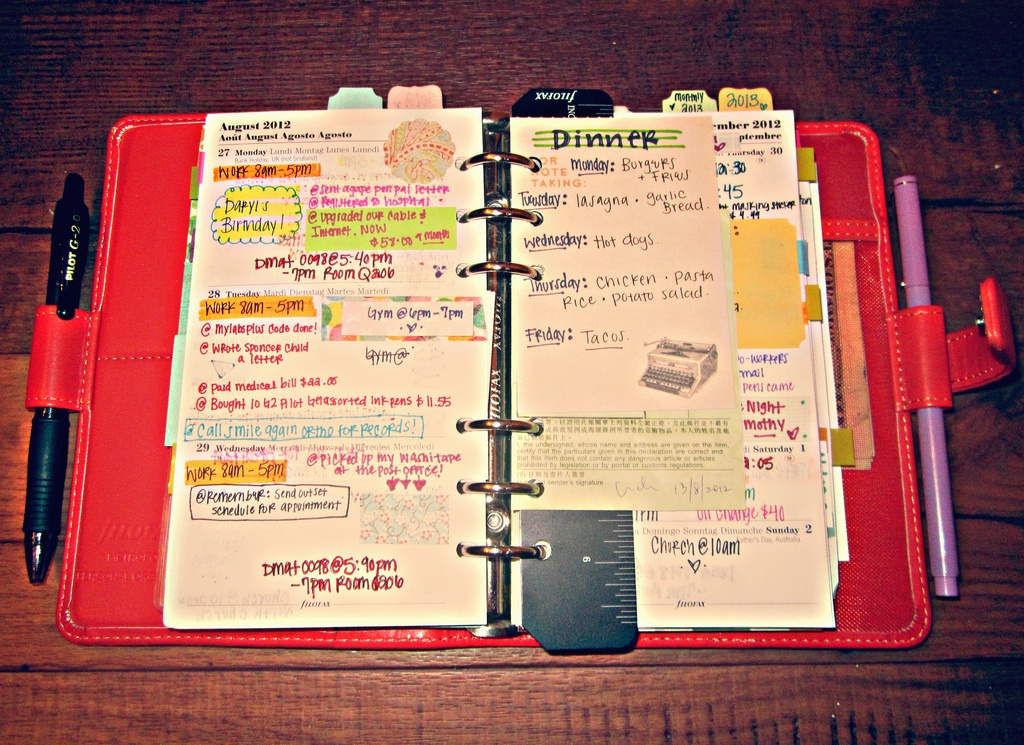 PILOT G-2
August 2012
Août August Agosto Agosto
27 Monday Lundi Montag Lunes Lunedì
Bank Holiday, UK (not Scotland)
WORK 8am-5pm
@ sent agape pen pal letter
@ Registered to hospital
Daryl's
Birthday!
@ upgraded our cable &
Internet. NOW
$58.00 a month
Dmat 0098@5:40pm
-7pm Room
28 Tuesday Mardi Dienstag Martes Martedì
WORK 8am-5pm
Gym @ 6pm-7pm
@ mylabsplus code done!
@ wrote sponcer child
a letter
Gym@
@ paid medical bill $22.00
@ Bought 10 G2 Pilot Gel assorted ink pens $11.55
@ Call smile again ortho for records!
29 Wednesday Mercredi Mittwoch Miércoles Mercoledì
WORK 8am-5pm
@ picked up my washi tape
at the post office!
@Remember: Send out set
schedule for appointment
Dmat 0098@5:40pm
-7pm Room
fILOFAX
fILOFAX
monthly
2013
2013
Dinner
FOR
NOTE
TAKING:
Monday: Burgurs
+ Fries
Tuesday: lasagna · garlic
Bread.
Wednesday: Hot dogs
Thursday: Chicken · Pasta
Rice · potato salad.
Friday: Tacos
I, the undersigned, whose name and address are given on the item,
certify that the particulars given in this declaration are correct and
that this item does not contain any dangerous article or articles
prohibited by legislation or by postal or customs regulations.
sender's signature
13/8/2012
6
ember 2012
eptembre
Thursday 30
:30
:45
masking sticker
$4.99
co-workers
mail
pens came
Night
mothy
Saturday 1
:05
1pm
Oil change $40
Domingo Sonntag Dimanche Sunday 2
Father's Day, Australia
Church @ 10am
fILOFAX